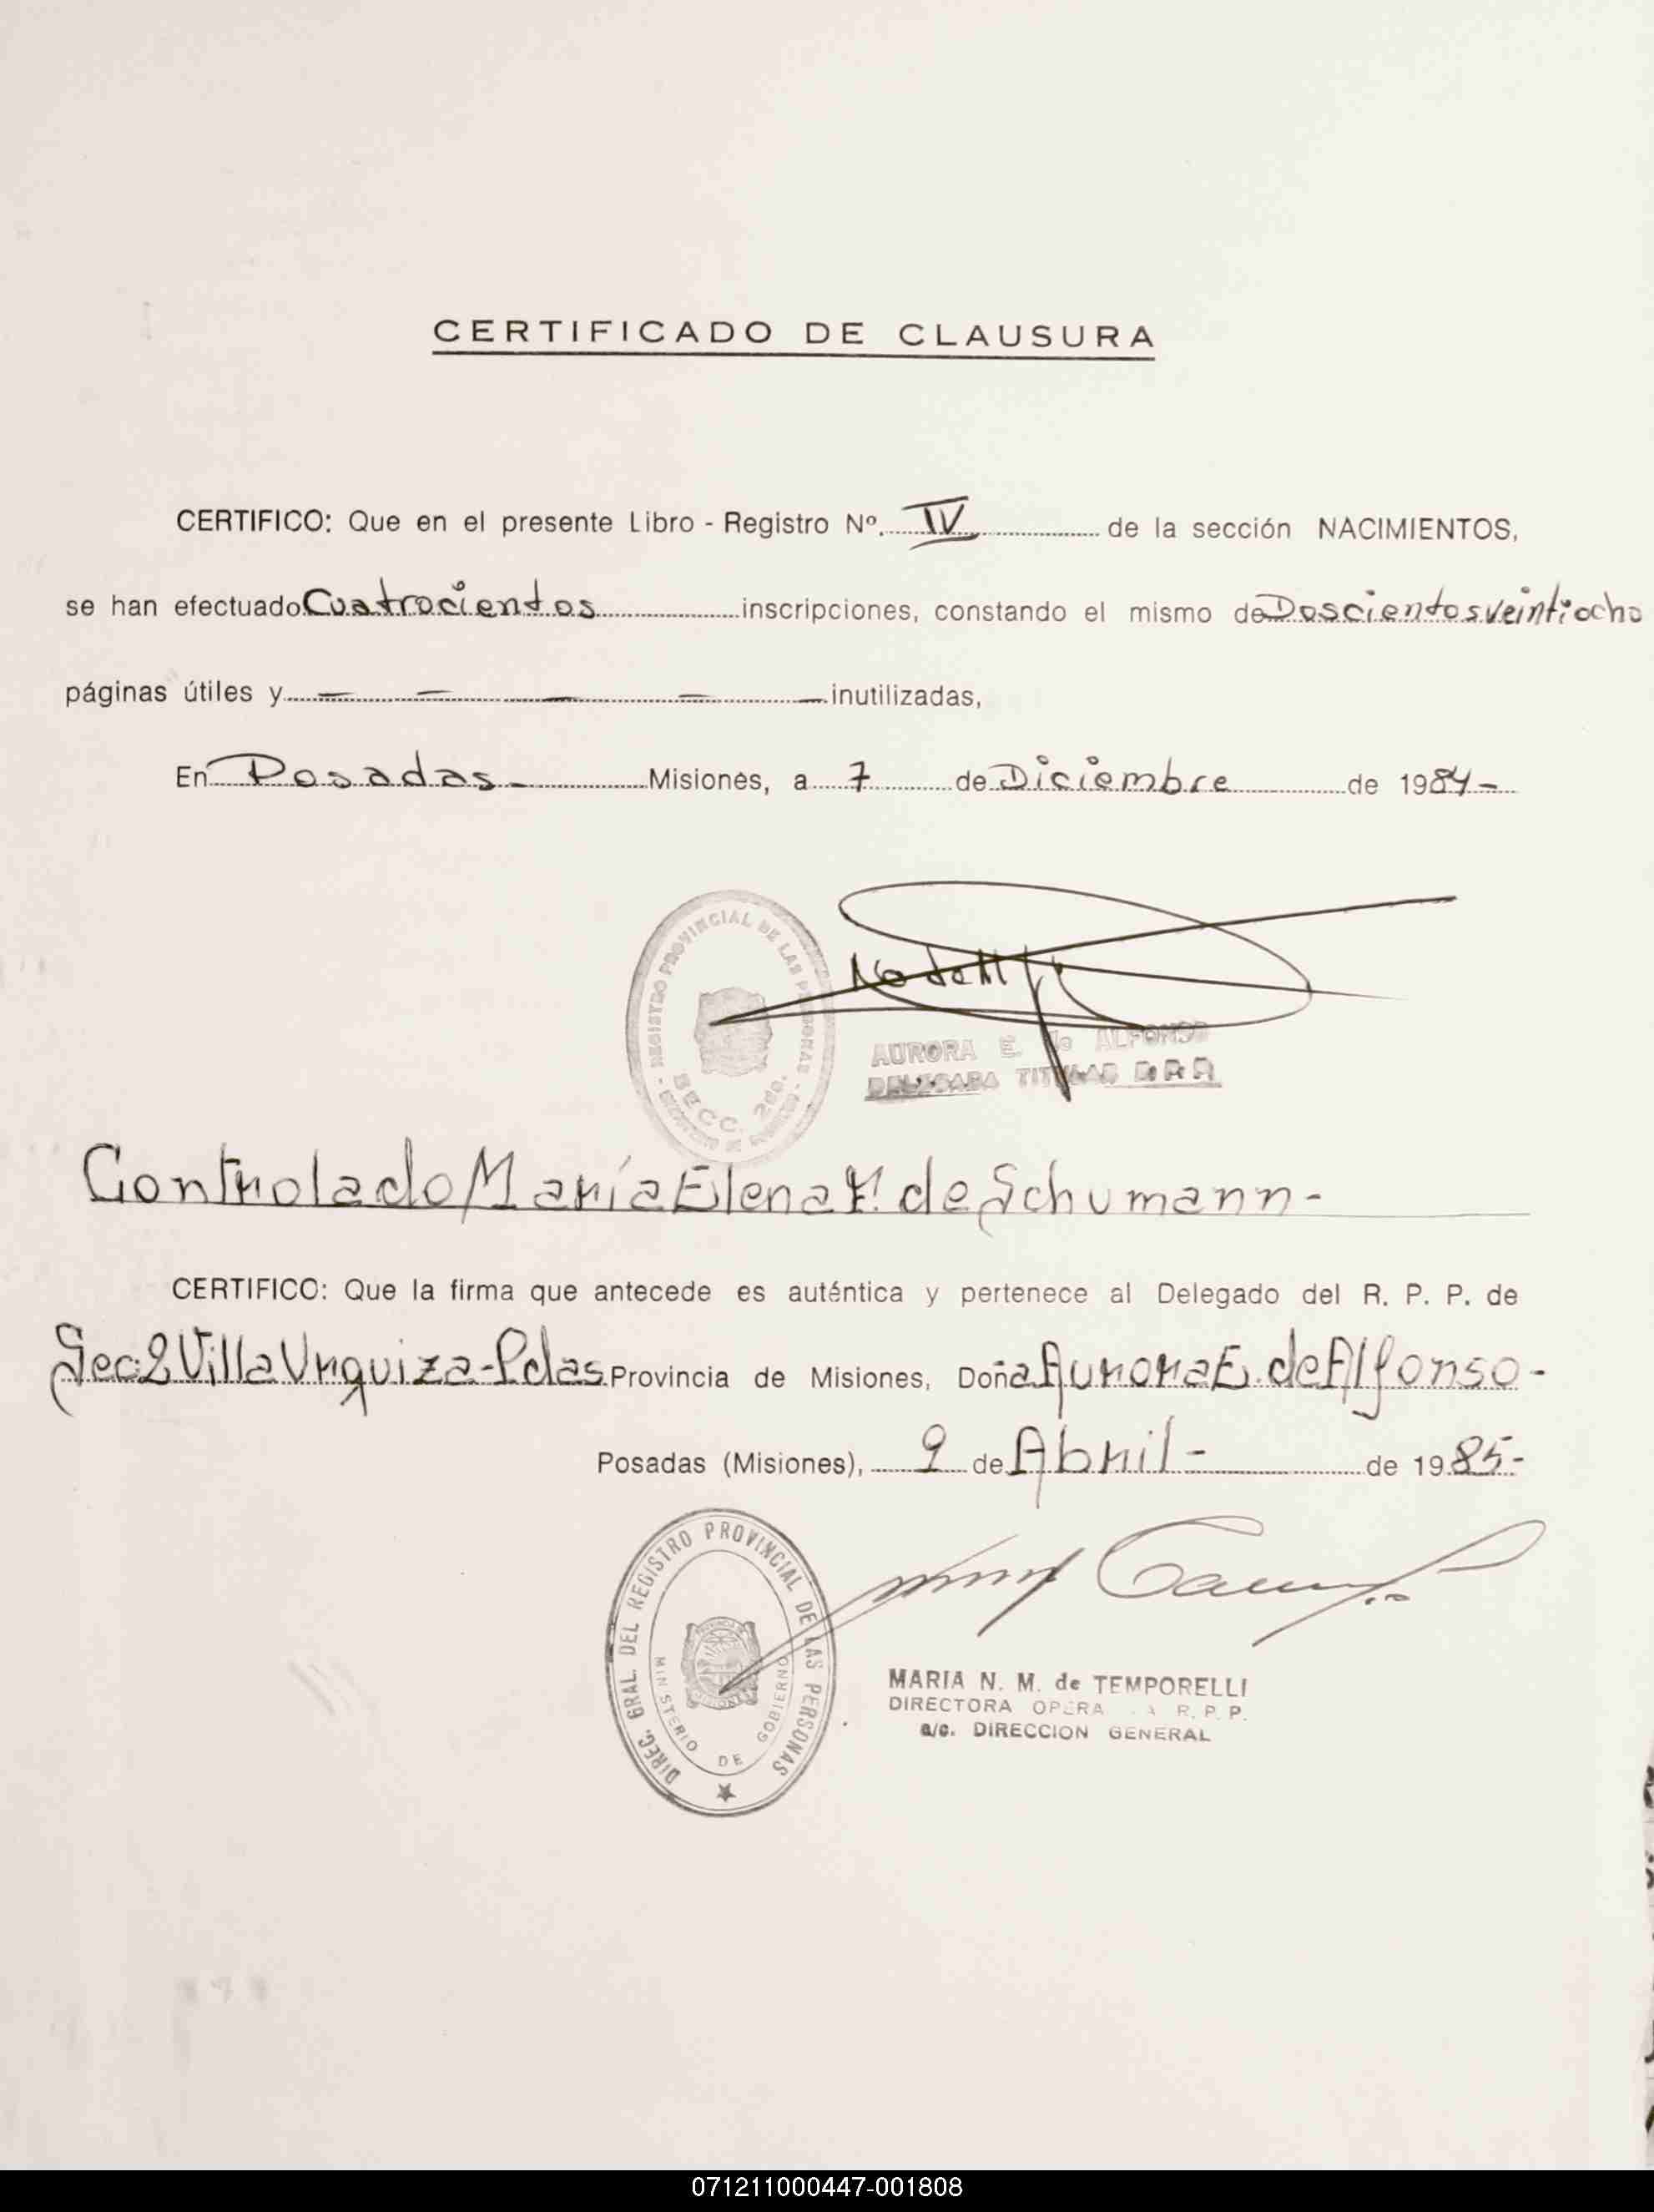 CERTIFICADO DE CLAUSURA
CERTIFICO: Que en el presente Libro - Registro Nº. IV de la sección NACIMIENTOS,
se han efectuado Cuatrocientos inscripciones, constando el mismo de Doscientos veintiocho
páginas útiles y — — — — — inutilizadas,
En Posadas - Misiones, a 7 de Diciembre de 1984 -
REGISTRO PROVINCIAL DE LAS PERSONAS
SECC. 2da.
AURORA E. de ALFONSO
DELEGADA TITULAR R.P.P.
Controlado María Elena K. de Schumann -
CERTIFICO: Que la firma que antecede es auténtica y pertenece al Delegado del R. P. P. de
Sec: 2 Villa Urquiza - Pdas Provincia de Misiones, Doña Aurora E. de Alfonso -
Posadas (Misiones), 9 de Abril - de 1985 -
DIREC. GRAL. DEL REGISTRO PROVINCIAL DE LAS PERSONAS
MINISTERIO DE GOBIERNO
MARIA N. M. de TEMPORELLI
DIRECTORA R. P. P.
a/c. DIRECCION GENERAL
071211000447-001808